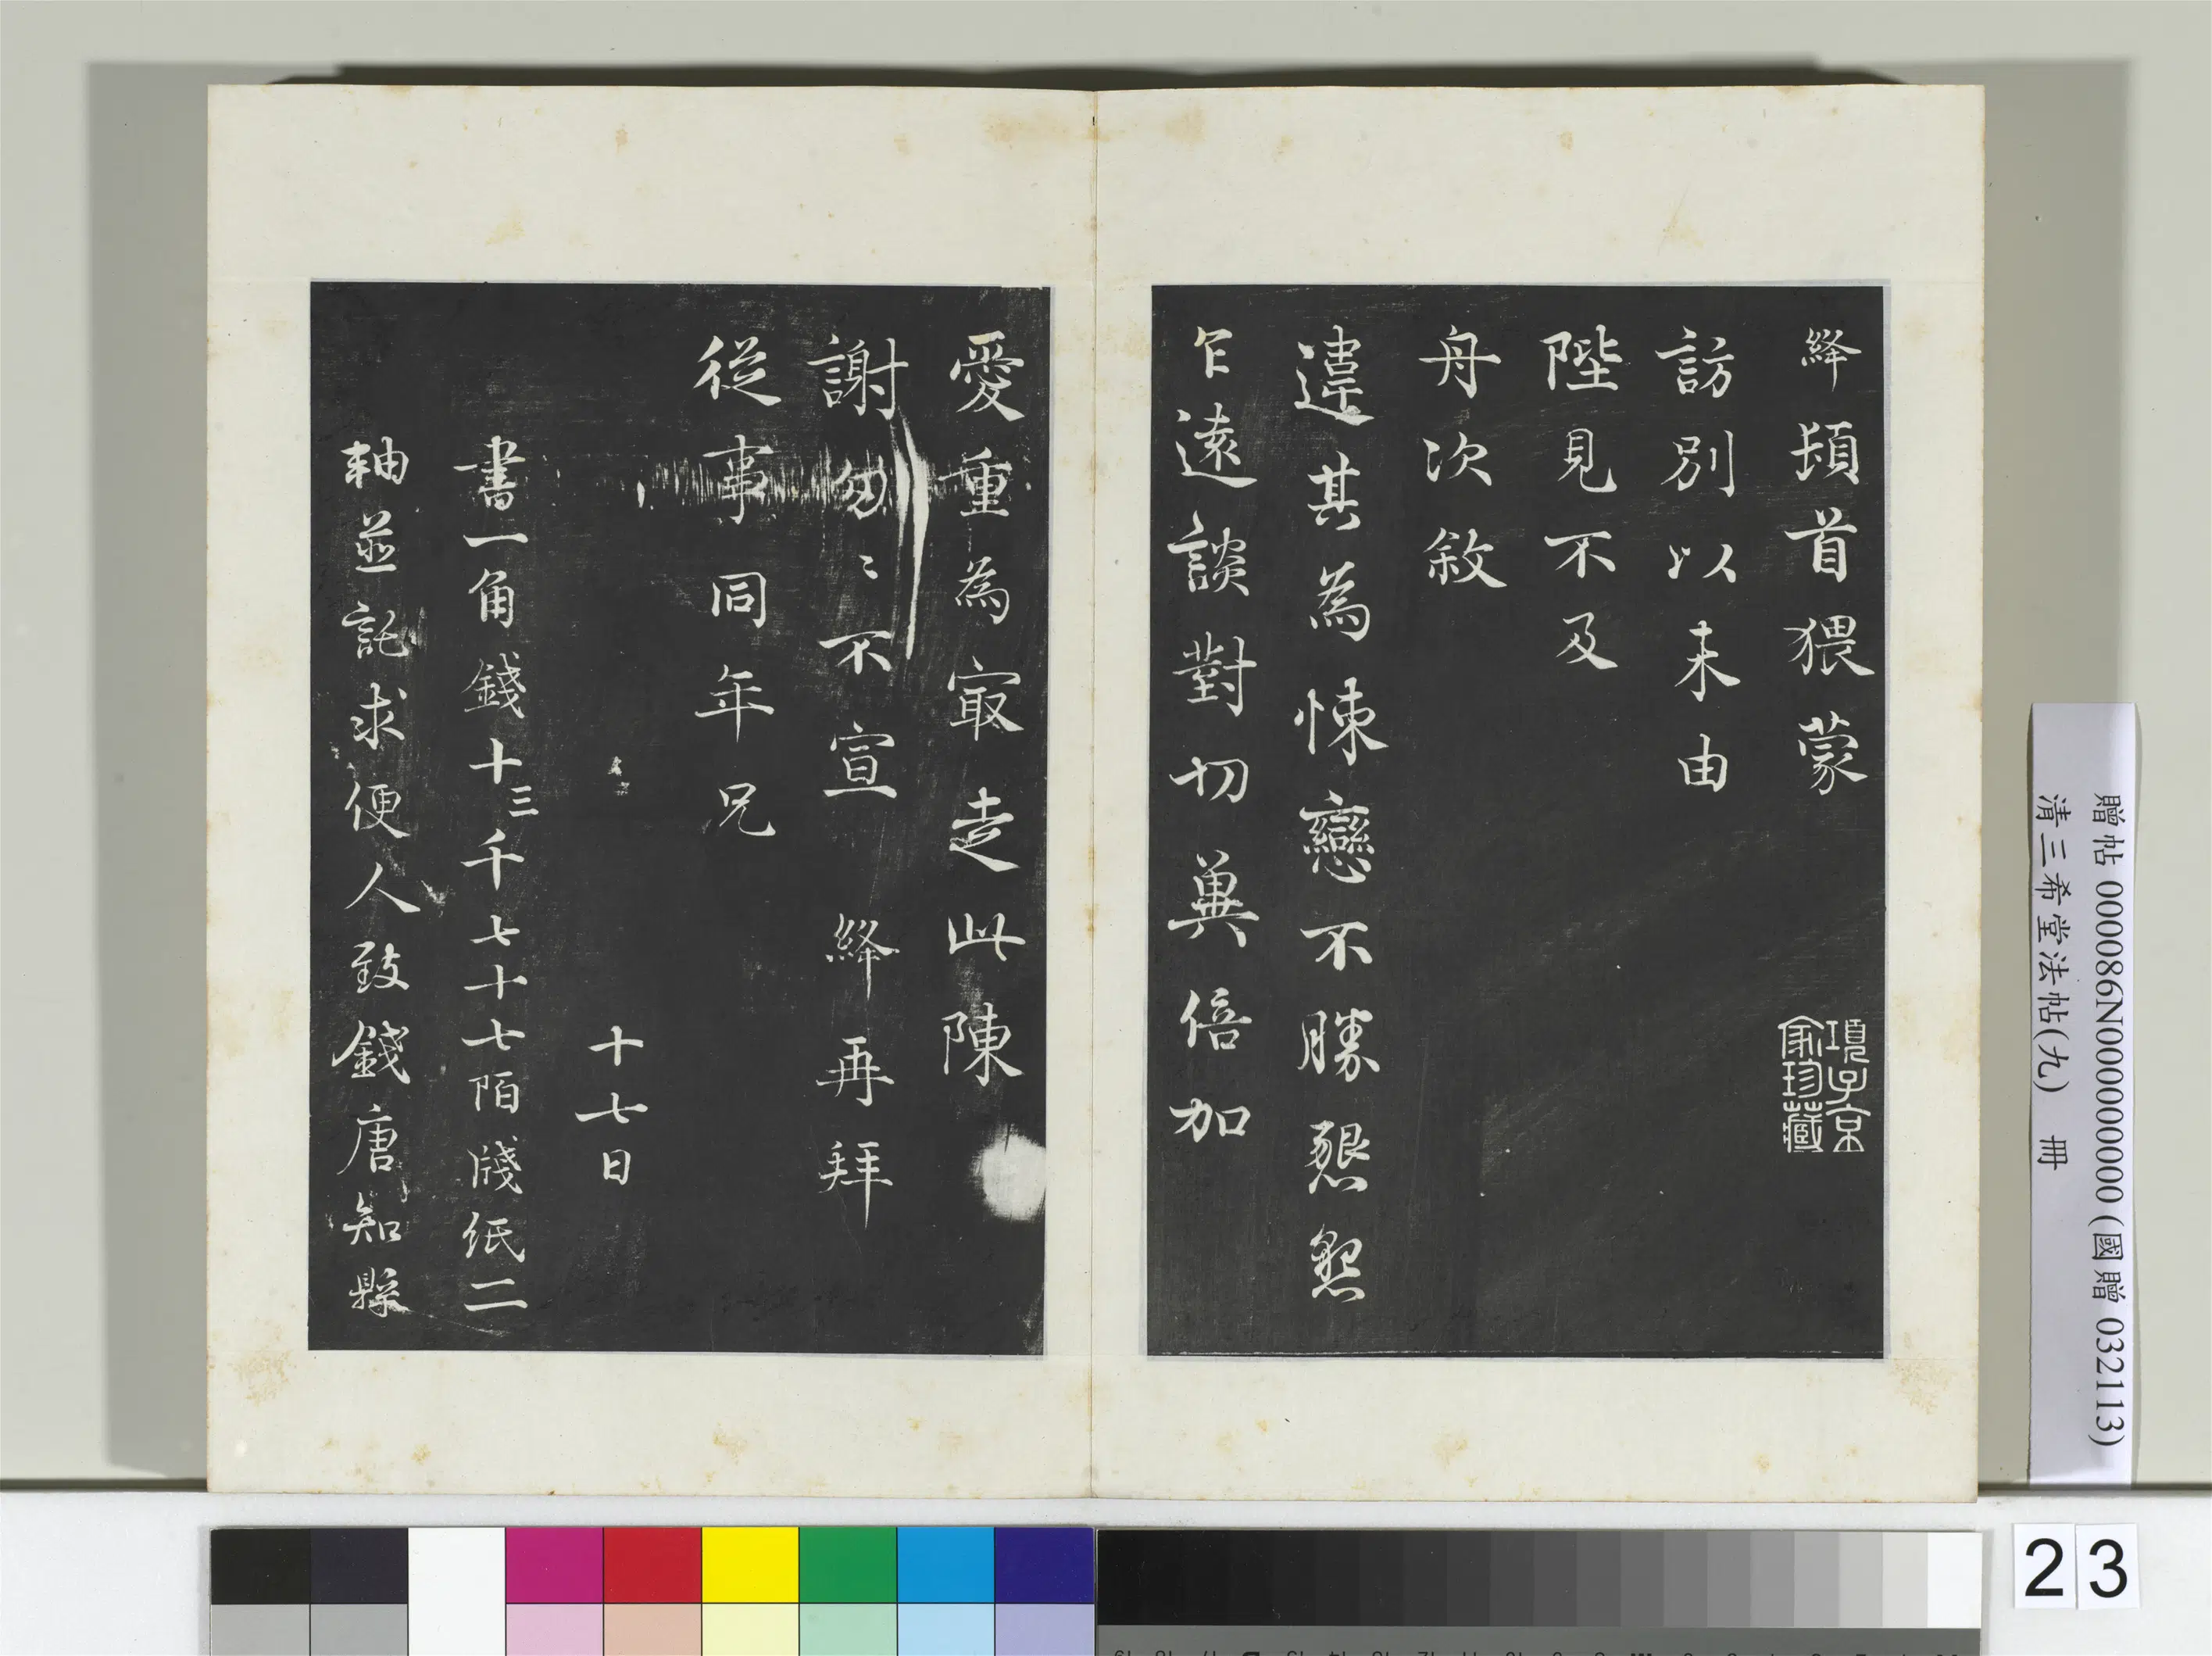 絳頓首猥蒙
訪別以未由
陛見不及
舟次敘
違其為悚戀不勝懇懇
乍遠談對切冀倍加
項子京
家珍藏
愛重為寂走此陳
謝匆〻不宣 絳再拜
從事同年兄
十七日
書一角錢十三千七十七陌牋紙二
軸並託求便人致錢唐知縣
贈帖 000086N000000000 (國贈 032113)
清三希堂法帖(九) 冊
23